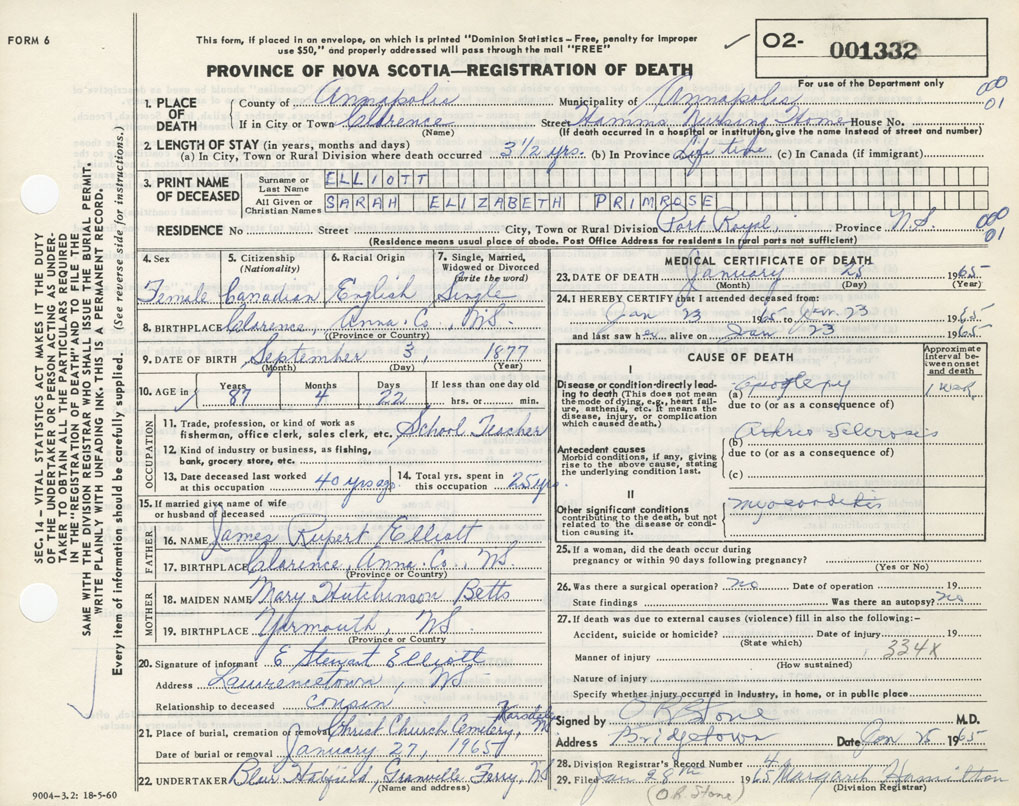 FORM 6
This form, if placed in an envelope, on which is printed "Dominion Statistics - Free, penalty for improper
use $50," and properly addressed will pass through the mail "FREE"
O2- 001332
For use of the Department only
PROVINCE OF NOVA SCOTIA—REGISTRATION OF DEATH
000
01
1. PLACE OF DEATH
County of Annapolis Municipality of Annapolis
If in City or Town Clarence Street Hamms Nursing Home House No.
(Name) (If death occurred in a hospital or institution, give the name instead of street and number)
2. LENGTH OF STAY (in years, months and days)
(a) In City, Town or Rural Division where death occurred 3 1/2 yrs. (b) In Province Life time (c) In Canada (if immigrant)
3. PRINT NAME OF DECEASED
Surname or Last Name ELLIOTT
All Given or Christian Names SARAH ELIZABETH PRIMROSE
RESIDENCE No Street City, Town or Rural Division Port Royal, Province N.S.
000
01
(Residence means usual place of abode. Post Office Address for residents in rural parts not sufficient)
4. Sex 5. Citizenship (Nationality) 6. Racial Origin 7. Single, Married, Widowed or Divorced (write the word)
Female Canadian English Single
8. BIRTHPLACE Clarence, Anna. Co., NS
(Province or Country)
9. DATE OF BIRTH September 3, 1877
(Month) (Day) (Year)
10. AGE in Years 87 Months 4 Days 22 If less than one day old hrs. or min.
OCCUPATION
11. Trade, profession, or kind of work as
fisherman, office clerk, sales clerk, etc. School Teacher
12. Kind of industry or business, as fishing,
bank, grocery store, etc.
13. Date deceased last worked at this occupation 40 yrs ago 14. Total yrs. spent in this occupation 25 yrs.
15. If married give name of wife
or husband of deceased
FATHER
16. NAME James Rupert Elliott
17. BIRTHPLACE Clarence, Anna. Co., NS.
(Province or Country)
MOTHER
18. MAIDEN NAME Mary Hutchinson Betts
19. BIRTHPLACE Yarmouth, NS
(Province or Country)
20. Signature of informant E Stewart Elliott
Address Lawrencetown, NS
Relationship to deceased cousin
21. Place of burial, cremation or removal Christ Church Cemetery, NS
Date of burial or removal January 27, 1965
22. UNDERTAKER Hatfield, Granville Ferry, NS
(Name and address)
9004-3.2: 18-5-60
MEDICAL CERTIFICATE OF DEATH
23. DATE OF DEATH January 25 1965
(Month) (Day) (Year)
24. I HEREBY CERTIFY that I attended deceased from:
Jan 23 1965 to Jan. 23 1965
and last saw her alive on Jan 23 1965
CAUSE OF DEATH
Approximate interval between onset and death
Disease or condition directly leading to death (This does not mean the mode of dying, e.g., heart failure, asthenia, etc. It means the disease, injury, or complication which caused death.)
(a) 1 week
due to (or as a consequence of)
Antecedent causes
Morbid conditions, if any, giving rise to the above cause, stating the underlying condition last.
(b) Sclerosis
due to (or as a consequence of)
(c)
II
Other significant conditions
contributing to the death, but not related to the disease or condition causing it.
myocarditis
25. If a woman, did the death occur during
pregnancy or within 90 days following pregnancy?
(Yes or No)
26. Was there a surgical operation? no Date of operation 19
State findings Was there an autopsy? no
27. If death was due to external causes (violence) fill in also the following:-
Accident, suicide or homicide? Date of injury 19
(State which)
334X
Manner of injury
(How sustained)
Nature of injury
Specify whether injury occurred in industry, in home, or in public place
Signed by O.R. Stone M.D.
Address Bridgetown Date Jan 26 1965
28. Division Registrar's Record Number 4
29. Filed Jan 28th 1965 Margaret Hamilton
(Division Registrar)
(O.R. Stone)
SEC. 14 - VITAL STATISTICS ACT MAKES IT THE DUTY
OF THE UNDERTAKER OR PERSON ACTING AS UNDER-
TAKER TO OBTAIN ALL THE PARTICULARS REQUIRED
IN THE "REGISTRATION OF DEATH" AND TO FILE THE
SAME WITH THE DIVISION REGISTRAR WHO SHALL ISSUE THE BURIAL PERMIT.
WRITE PLAINLY WITH UNFADING INK - THIS IS A PERMANENT RECORD.
Every item of information should be carefully supplied. (See reverse side for instructions.)